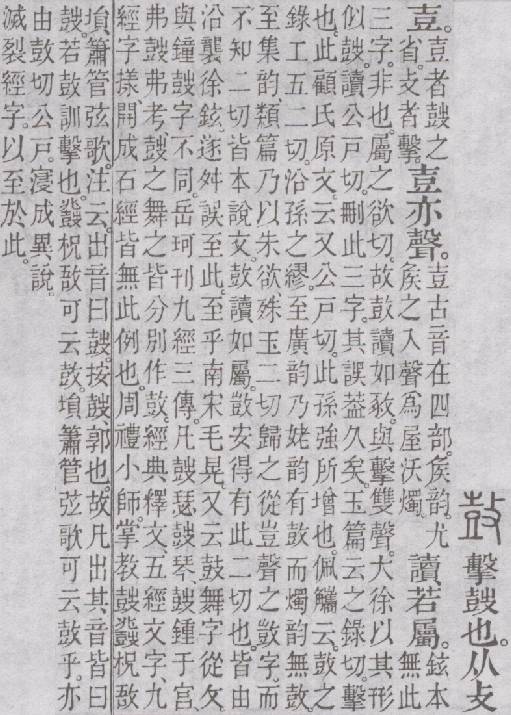 擊鼓也。从攴
壴。壴者鼓之省。攴者擊。壴亦聲。壴古音在四部。矦韵。尤矦之入聲爲屋沃燭。讀若屬。鉉本無此
三字。非也。屬之欲切。故鼔讀如豥。與擊雙聲。大徐以其形
似鼓。讀公戶切。刪此三字。其誤葢久矣。玉篇云之錄切。擊
也。此顧氏原文。云又公戶切。此孫強所增也。佩觿云。鼔之
錄工五二切。沿孫之繆。至廣韵乃姥韵有鼔而燭韵無鼔。
至集韵類篇乃以朱欲殊玉二切歸之從豈聲之敳字。而
不知二切皆本說文。鼔讀如屬。敳安得有此二切也。皆由
沿襲徐鉉。遂舛誤至此。至乎南宋毛晃。又云鼓舞字從攵。
與鐘鼓字不同。岳珂刊九經三傳。凡鼓瑟鼓琴鼓鍾于宮
弗鼓弗考鼓之舞之皆分別作鼔。經典釋文五經文字九
經字㨾開成石經皆無此例也。周禮小師。掌教鼓鼗柷敔
塤簫管弦歌。注云。出音曰鼓。按鼓、郭也。故凡出其音皆曰
鼓。若鼔訓擊也。鼗柷敔可云鼔。塤簫管弦歌可云鼔乎。亦
由鼔切公戶。寖成異說。
滅裂經字。以至於此。